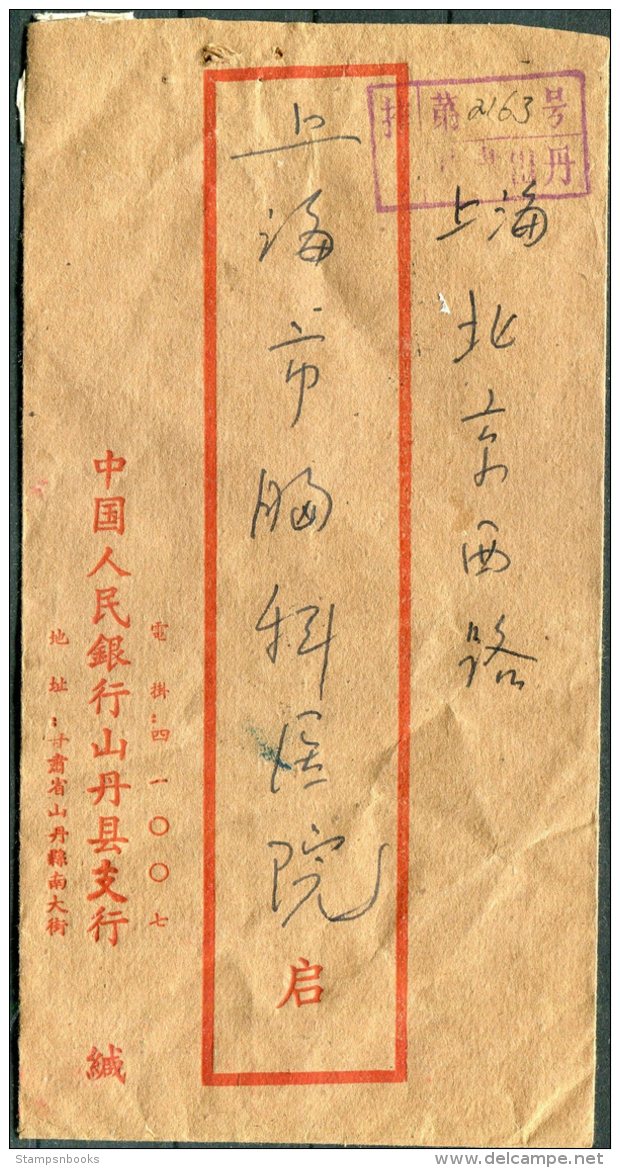 挂 第2163号
山丹
上海北京西路
上海市胸科医院 启
電掛：四一〇〇七
中国人民銀行山丹县支行 緘
地址：甘肃省山丹縣南大街
Stampsnbooks
www.delcampe.net